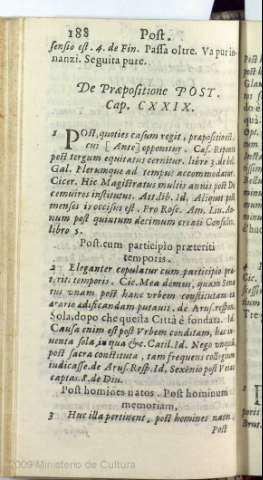 188 Post.
sensio est. 4. de Fin. Passa oltre. Va pur in-
nanzi. Seguita pure.
De Præpositione POST.
Cap. CXXIX.
1 POst, quoties casum regit, præpositio est:
cui [Ante] opponitur. Cæs. Ripam
post tergum equitatus cernitur. libro 7. de bel.
Gal. Plerumque ad tempus accommodatur.
Cicer. Hic Magistratus multis annis post De
cemviros institutus. Att. lib. Id. Aliquot post
menses is occisus est. Pro Rosc. Am. Liu. An-
num post quintum decimum creati Consules.
libro 5.
Post. cum participio præteriti
temporis.
2 Eleganter copulatur cum participio præ-
teriti temporis. Cic. Mea domus, quam Sena
tus vnam post hanc vrbem constitutam ex
ærario ædificandam putauit. de Arus. respon.
Sola, dopo che questa Città è fondata. Id.
Causa enim est post Vrbem conditam, hæc in-
uenta sola, in qua &c. Catil. Id. Nego vnquam
post sacra constituta, tam frequens collegium
iudicasse. de Arus. Resp. Id. Sexennio post Veias
captas. de Diu.
Post homines natos. Post hominum
memoriam.
3 Huc illa pertinent, post homines natos,
Post
2009 Ministerio de Cultura